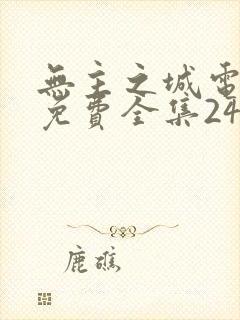 無主之城電
免費全集24
鹿礁